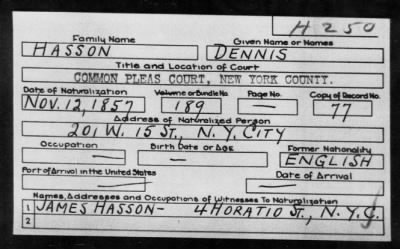 H 250
Family Name Given Name or Names
HASSON DENNIS
Title and Location of Court
COMMON PLEAS COURT, NEW YORK COUNTY.
Date of Naturalization Volume or Bundle No. Page No. Copy of Record No.
NOV. 12, 1857 189 — 77
Address of Naturalized Person
201 W. 15 ST., N.Y. CITY
Occupation Birth Date or Age Former Nationality
— — ENGLISH
Port of Arrival in the United States Date of Arrival
— —
Names, Addresses and Occupations of Witnesses To Naturalization
1 JAMES HASSON — 4 HORATIO ST., N.Y.C.
2